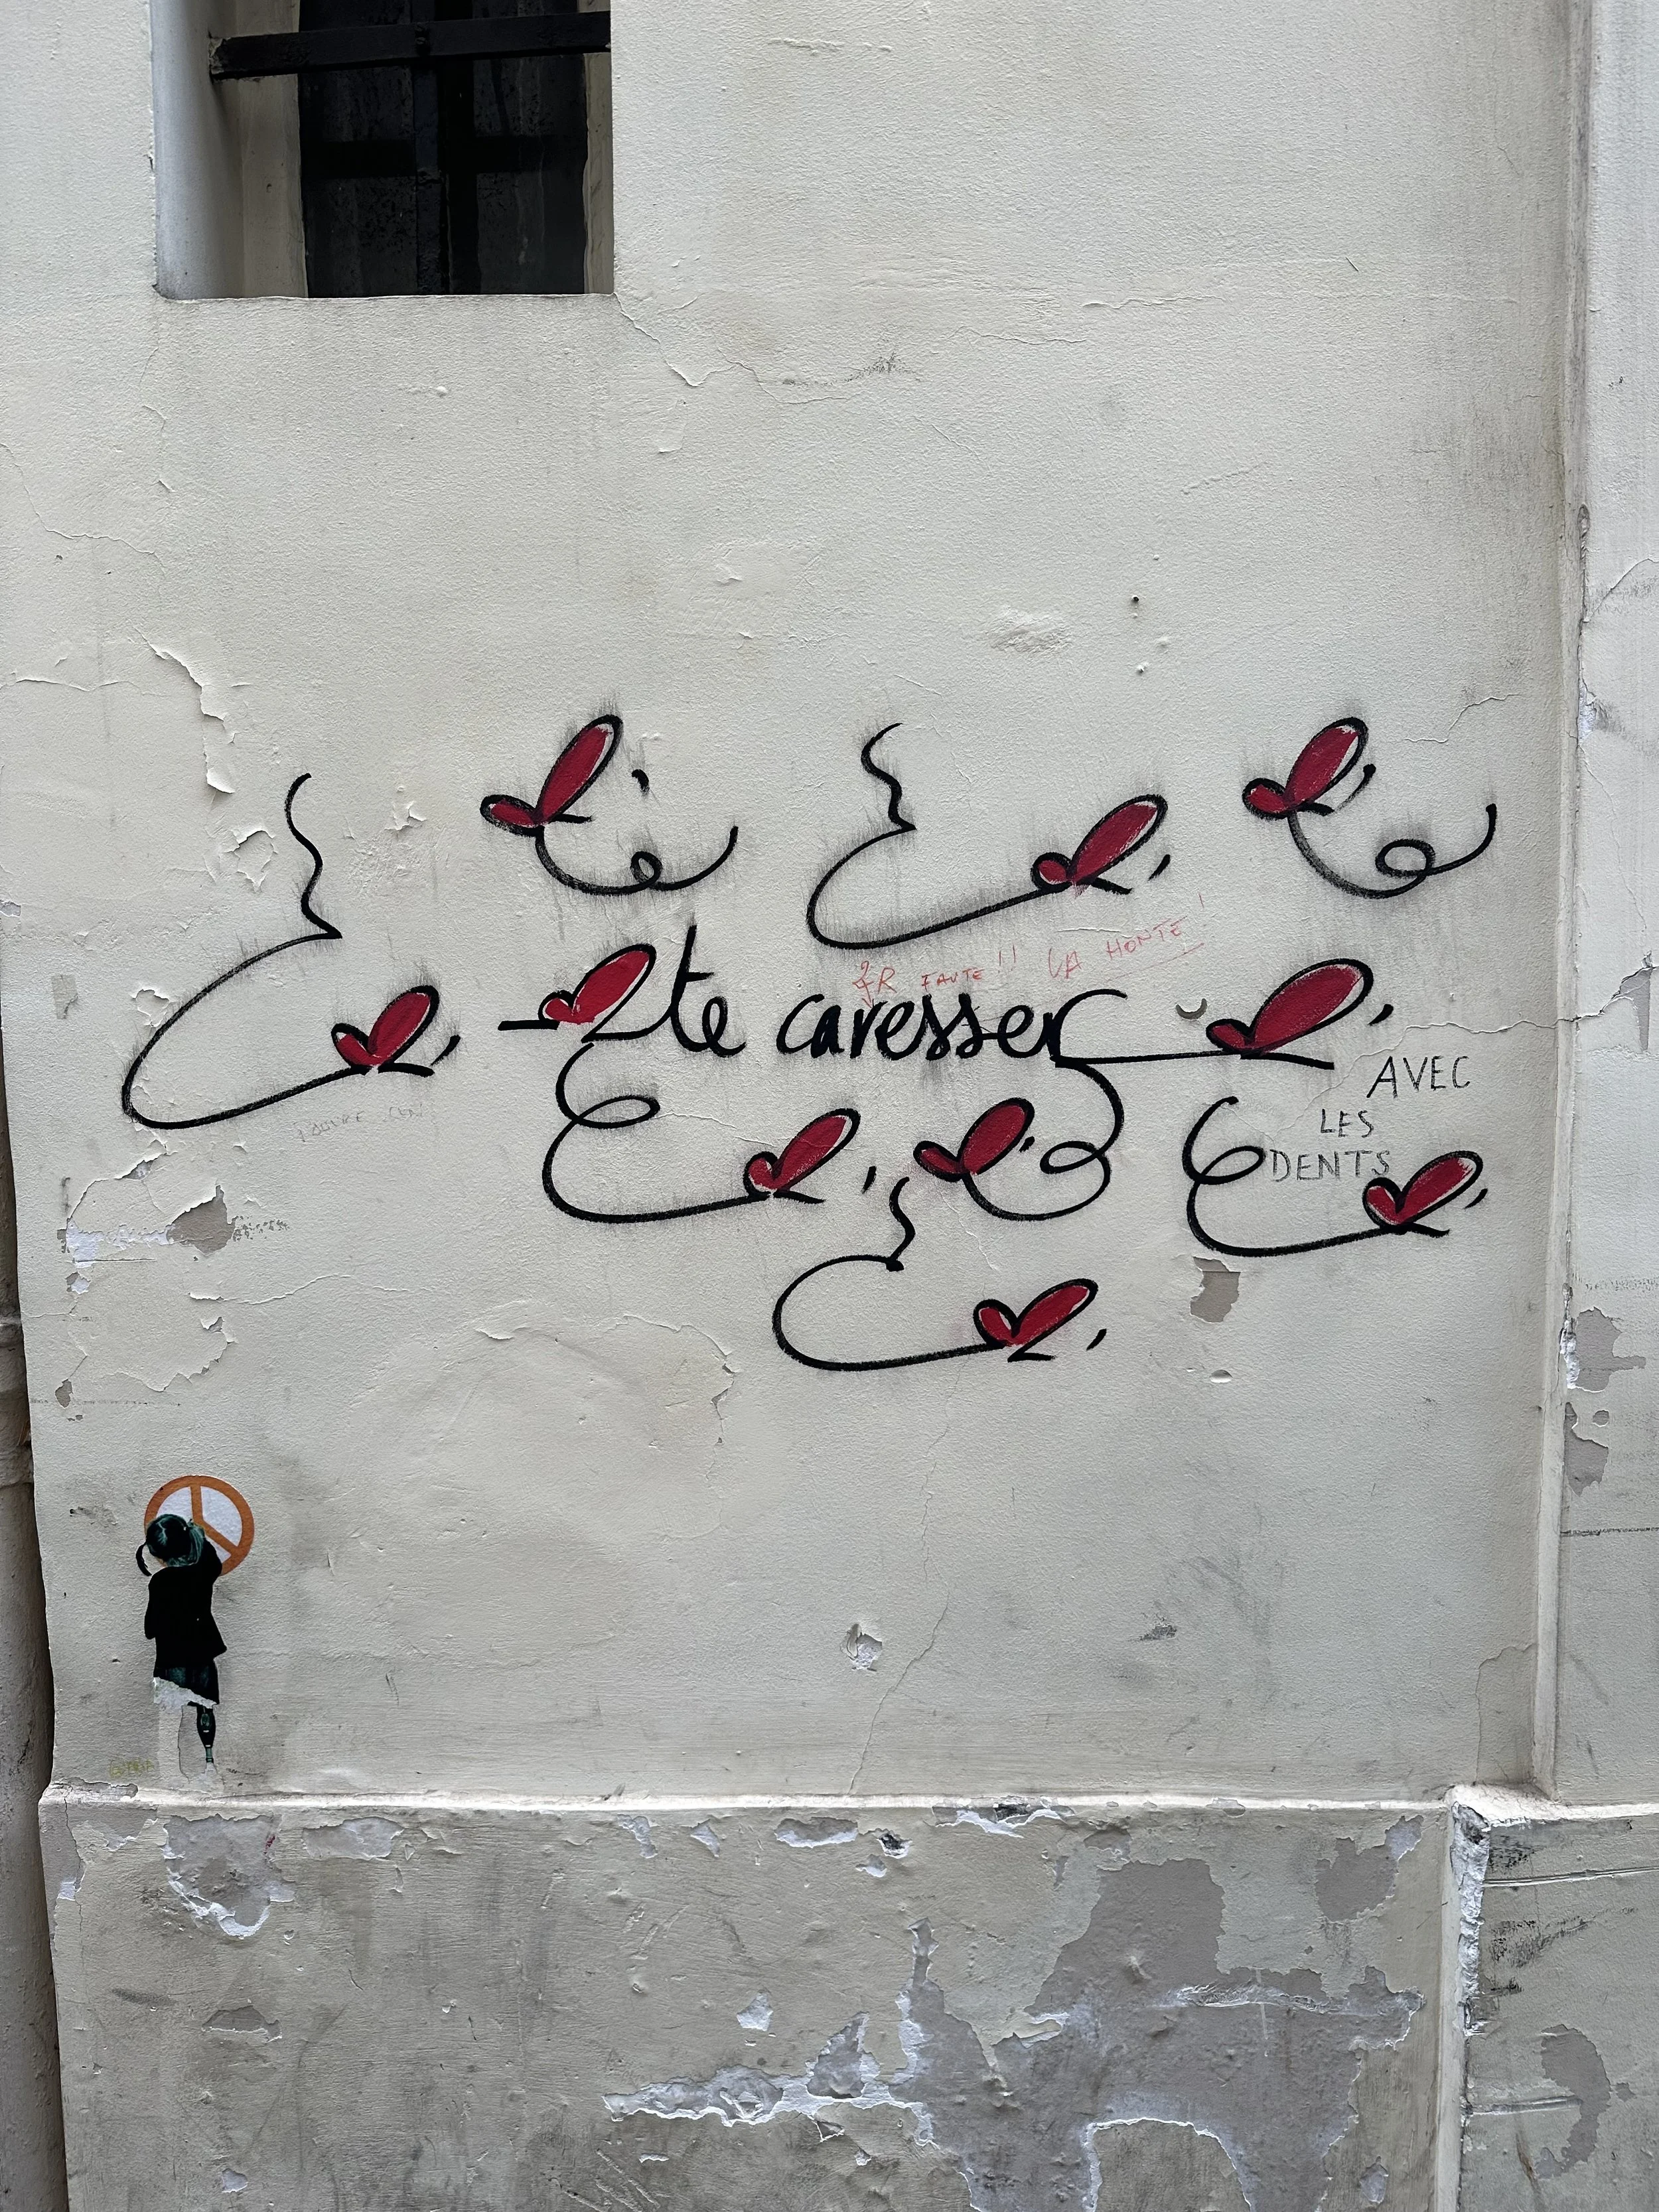 FAUTE!! LA HONTE!
te caresser
AVEC
LES
DENTS